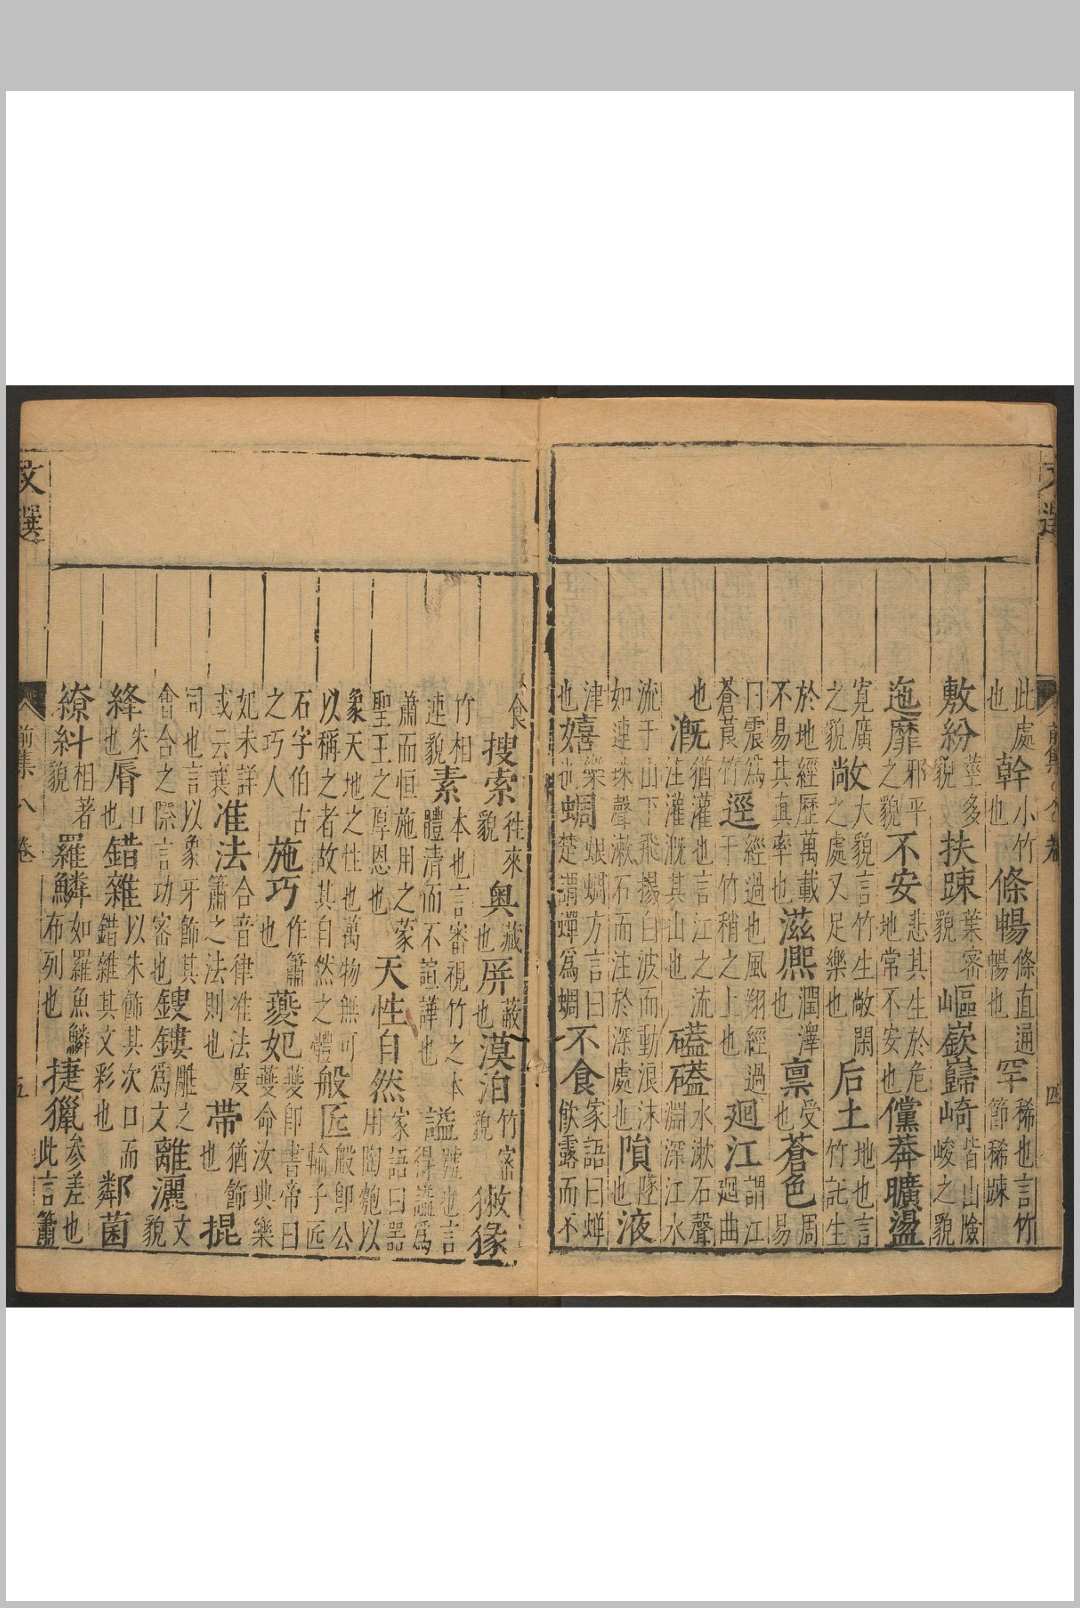 文選 前集八卷 四
此處也幹小竹也條暢條直通暢也罕稀也言竹節稀踈
敷紛莖多貌扶踈葉密貌嶇嶔巋崎皆山險峻之貌
迤靡邪平之貌不安悲其生於危地常不安也儻莽曠盪
寬廣之貌敞大貌言竹生敞閑之處又足樂也后土地也言竹託生
於地經歷萬載不易其真率也滋熈潤澤也稟受也蒼色周易
曰震為蒼莨竹逕經過也風翔經過于竹稍之上也廻江謂江廻曲
也漑猶灌也言江之流注灌溉其山也礚礚水漱石聲淵深江水
流于山下飛揚白波而動浪沫如連珠聲漱石而注於深處也隕墜也液
津也嬉樂也蜩蜋蜩方言曰楚謂蟬為蜩不食家語曰蟬飲露而不
食搜索徃來貌奥藏也屏蔽也漠泊竹密貌㺔猭
竹相連貌素本也言審視竹之本體清而不諠譁也謚號也言得謚為
蕭而恒施用之蒙聖王之厚恩也天性自然家語曰器用陶匏以
象天地之性也萬物無可以稱之者故其自然之體般匠般即公輸子匠
石字伯古之巧人施巧作簫也夔妃夔即書帝曰夔命汝典樂
妃未詳或云襄准法合音律准法度簫之法則也帶猶飾也掍
同也言以象牙飾其會合之際言功密也鎪鏤雕之為文離灑文貌
絳朱也脣口也錯雜以朱飾其次口而錯雜其文彩也鄰菌
繚糾相著貌羅鱗如羅魚鱗布列也捷獵參差也此言簫
文選 前集八卷 五